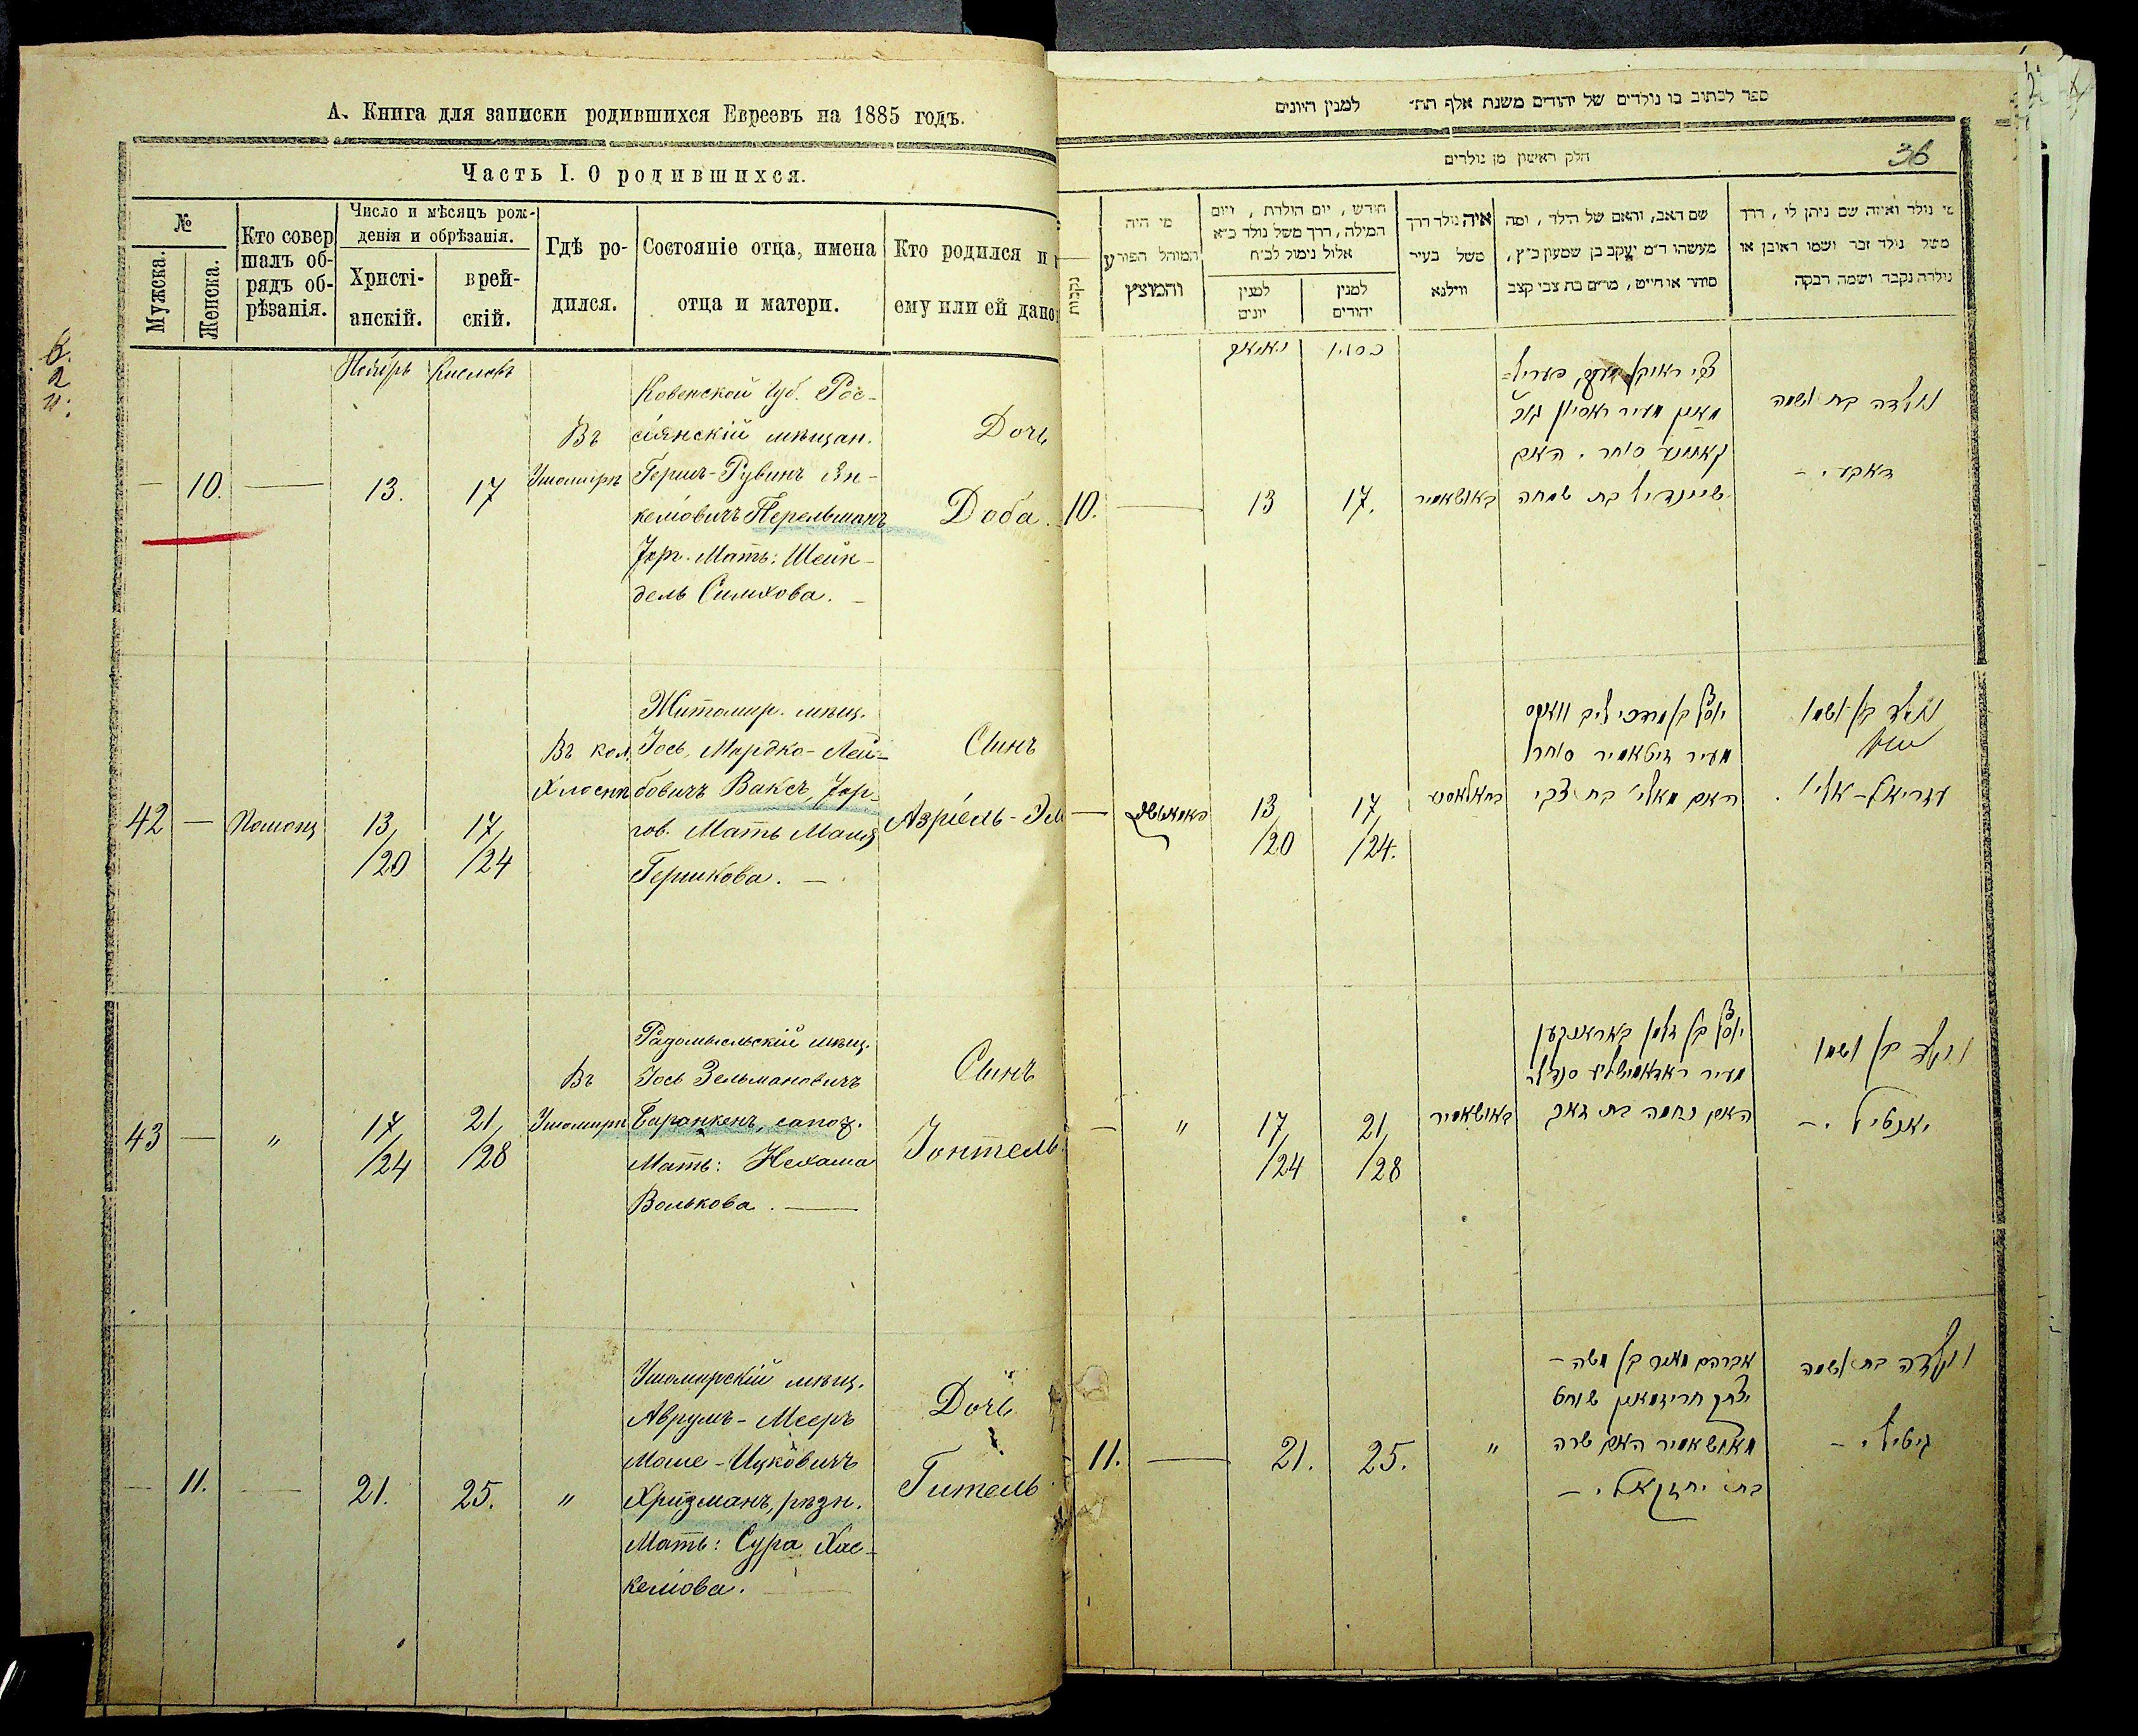 А. Книга для записки родившихся Евреевъ на 1885 годъ.
Часть I. О родившихся.
№
Мужска.
Женска.
Кто совер
шалъ об-
рядъ об-
рѣзанія.
Число и мѣсяцъ рож-
денія и обрѣзанія.
Христі-
анскій.
врей-
скій.
Гдѣ ро-
дился.
Состояніе отца, имена
отца и матери.
Кто родился и
ему или ей дано
Ноябрь
Кислевъ
— 10. — 13. 17
Въ
Ушомирѣ
Ковенской Губ. Рос-
сіянскій мѣщан.
Гершъ-Рувинъ Ян-
келіовичъ Перельманъ
Торг. Мать: Шейн-
дель Симхова. —
Дочь
Доба.
42 —
13/20
17/24
Въ кол.
Житомир. мѣщ.
Іось, Мордко-Лей-
бовичъ Ваксъ, Тор-
гов. Мать Маля
Гершкова. —
Сынъ
Азріель-Эл
43 — "
17/24
21/28
Въ
Ушомирѣ
Радомысльскій мѣщ.
Іось Зельмановичъ
Баранкенъ, сапож.
Мать: Нехама
Волькова. —
Сынъ
Іонтель.
— 11. — 21. 25. "
Ушомирскій мѣщ.
Аврумъ-Мееръ
Моше-Ицковичъ
Хризманъ, рѣзн.
Мать: Сура Хас-
келіова. —
Дочь
Гитель
ספר לכתוב בו נולדים של יהודים משנת אלף תת״ למנין היונים
חלק ראשון מן נולדים
36
נקבות
מי היה
המוהל הפורע
והמוצץ
חודש, יום הולדת, ויום
המילה, דרך משל נולד כ״א
אלול נימול לכ״ח
למנין
יונים
למנין
יהודים
איה נולד דרך
משל בעיר
ווילנא
שם האב, והאם של הילד, ומה
מעשהו ד״מ יעקב בן שמעון כ״ץ,
סוחר או חייט, מרים בת צבי קצב
מי נולד ואיזה שם ניתן לו, דרך
משל נולד זכר ושמו ראובן או
נולדה נקבה ושמה רבקה
כסלו
10. — 13 17.
באושאמיר
סוחר. האם
שיינדיל בת שמחה
נולדה בת ושמה
דאבע. —
—
13/20
17/24.
יוסף בן מרדכי ליב וואקס
מעיר זיטאמיר סוחר
האם מאלי בת צבי
נולד בן ושמו
עזריאל-אליו.
— "
17/24
21/28
באושאמיר
יוסף בן זלמן באראנקען
האם נחמה בת זאב
נולד בן ושמו
יאנטיל. —
11. — 21. 25. "
אברהם מאיר בן משה-
יצחק חריזמאן שוחט
מאושאמיר האם שרה
בת יחזקאל. —
נולדה בת ושמה
גיטיל. —